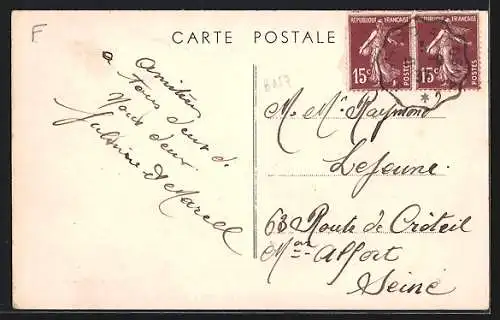 F
CARTE POSTALE
RÉPUBLIQUE FRANÇAISE
15c
POSTES
RÉPUBLIQUE FRANÇAISE
15c
POSTES
Amitiés
a tous deux d.
Nous deux.
et Marcel
M. Mme Raymond
Lejeune.
63 Route de Créteil
Mon Alfort
Seine